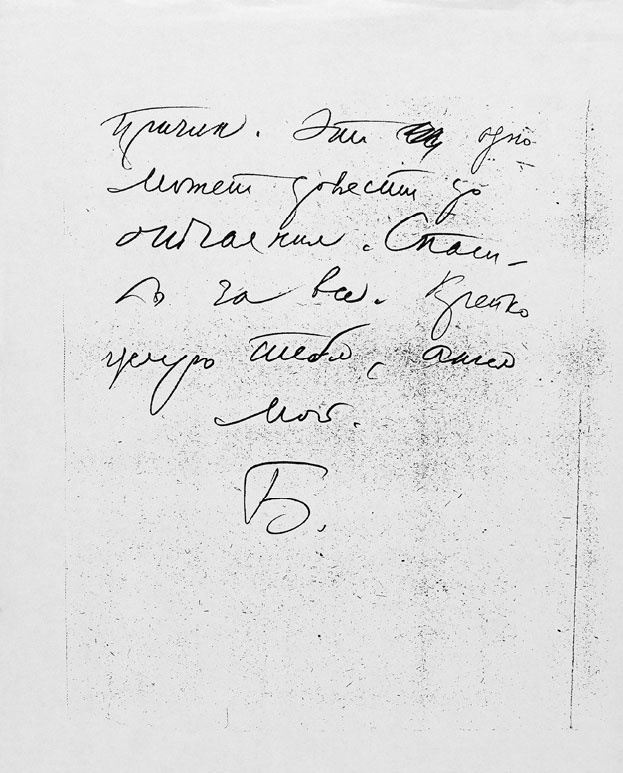 причин. Это одно
может довести до
отчаяния. Спаси-
бо за все. Крепко
целую тебя, ангел
мой.
Б.